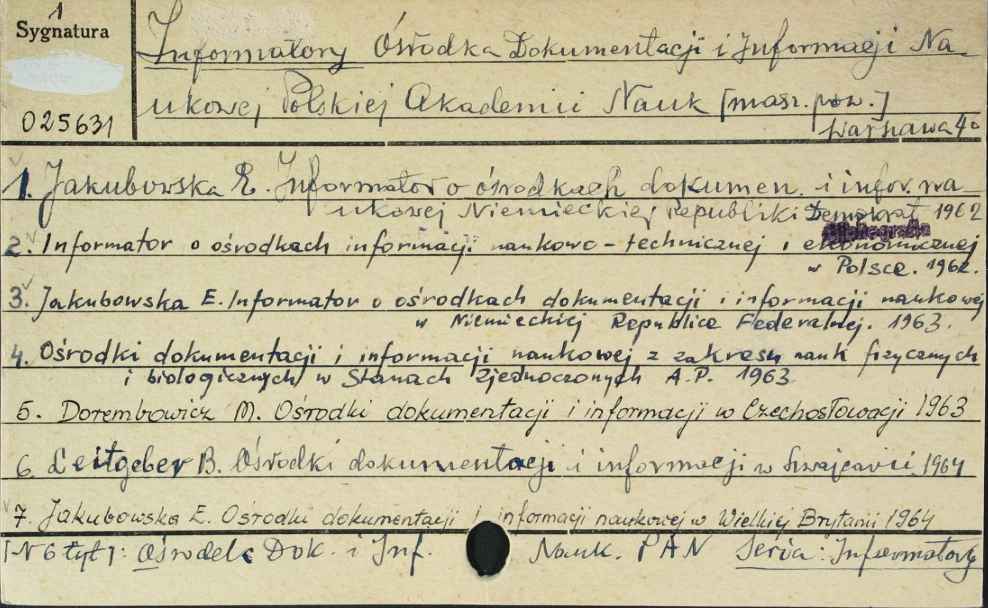 1
Sygnatura
025631
Informatory Ośrodka Dokumentacji i Informacji Na-
ukowej Polskiej Akademii Nauk [masz. pow.]
Warszawa 4°
1. Jakubowska E. Informator o ośrodkach dokumen. i infor. na-
ukowej Niemieckiej Republiki Demokrat 1962
2. Informator o ośrodkach informacji naukowo-technicznej i ekonomicznej
w Polsce. 1962.
3. Jakubowska E. Informator o ośrodkach dokumentacji i informacji naukowej
w Niemieckiej Republice Federalnej. 1963.
4. Ośrodki dokumentacji i informacji naukowej z zakresu nauk fizycznych
i biologicznych w Stanach Zjednoczonych A.P. 1963
5. Dorembowicz M. Ośrodki dokumentacji i informacji w Czechosłowacji 1963
6 Leitgeber B. Ośrodki dokumentacji i informacji w Szwajcarii 1964
7. Jakubowska E. Osrodki dokumentacji i informacji naukowej w Wielkiej Brytanii 1964
[N 6 tyt]: Ośrodek Dok. i Inf. Nauk. PAN Seria: Informatory